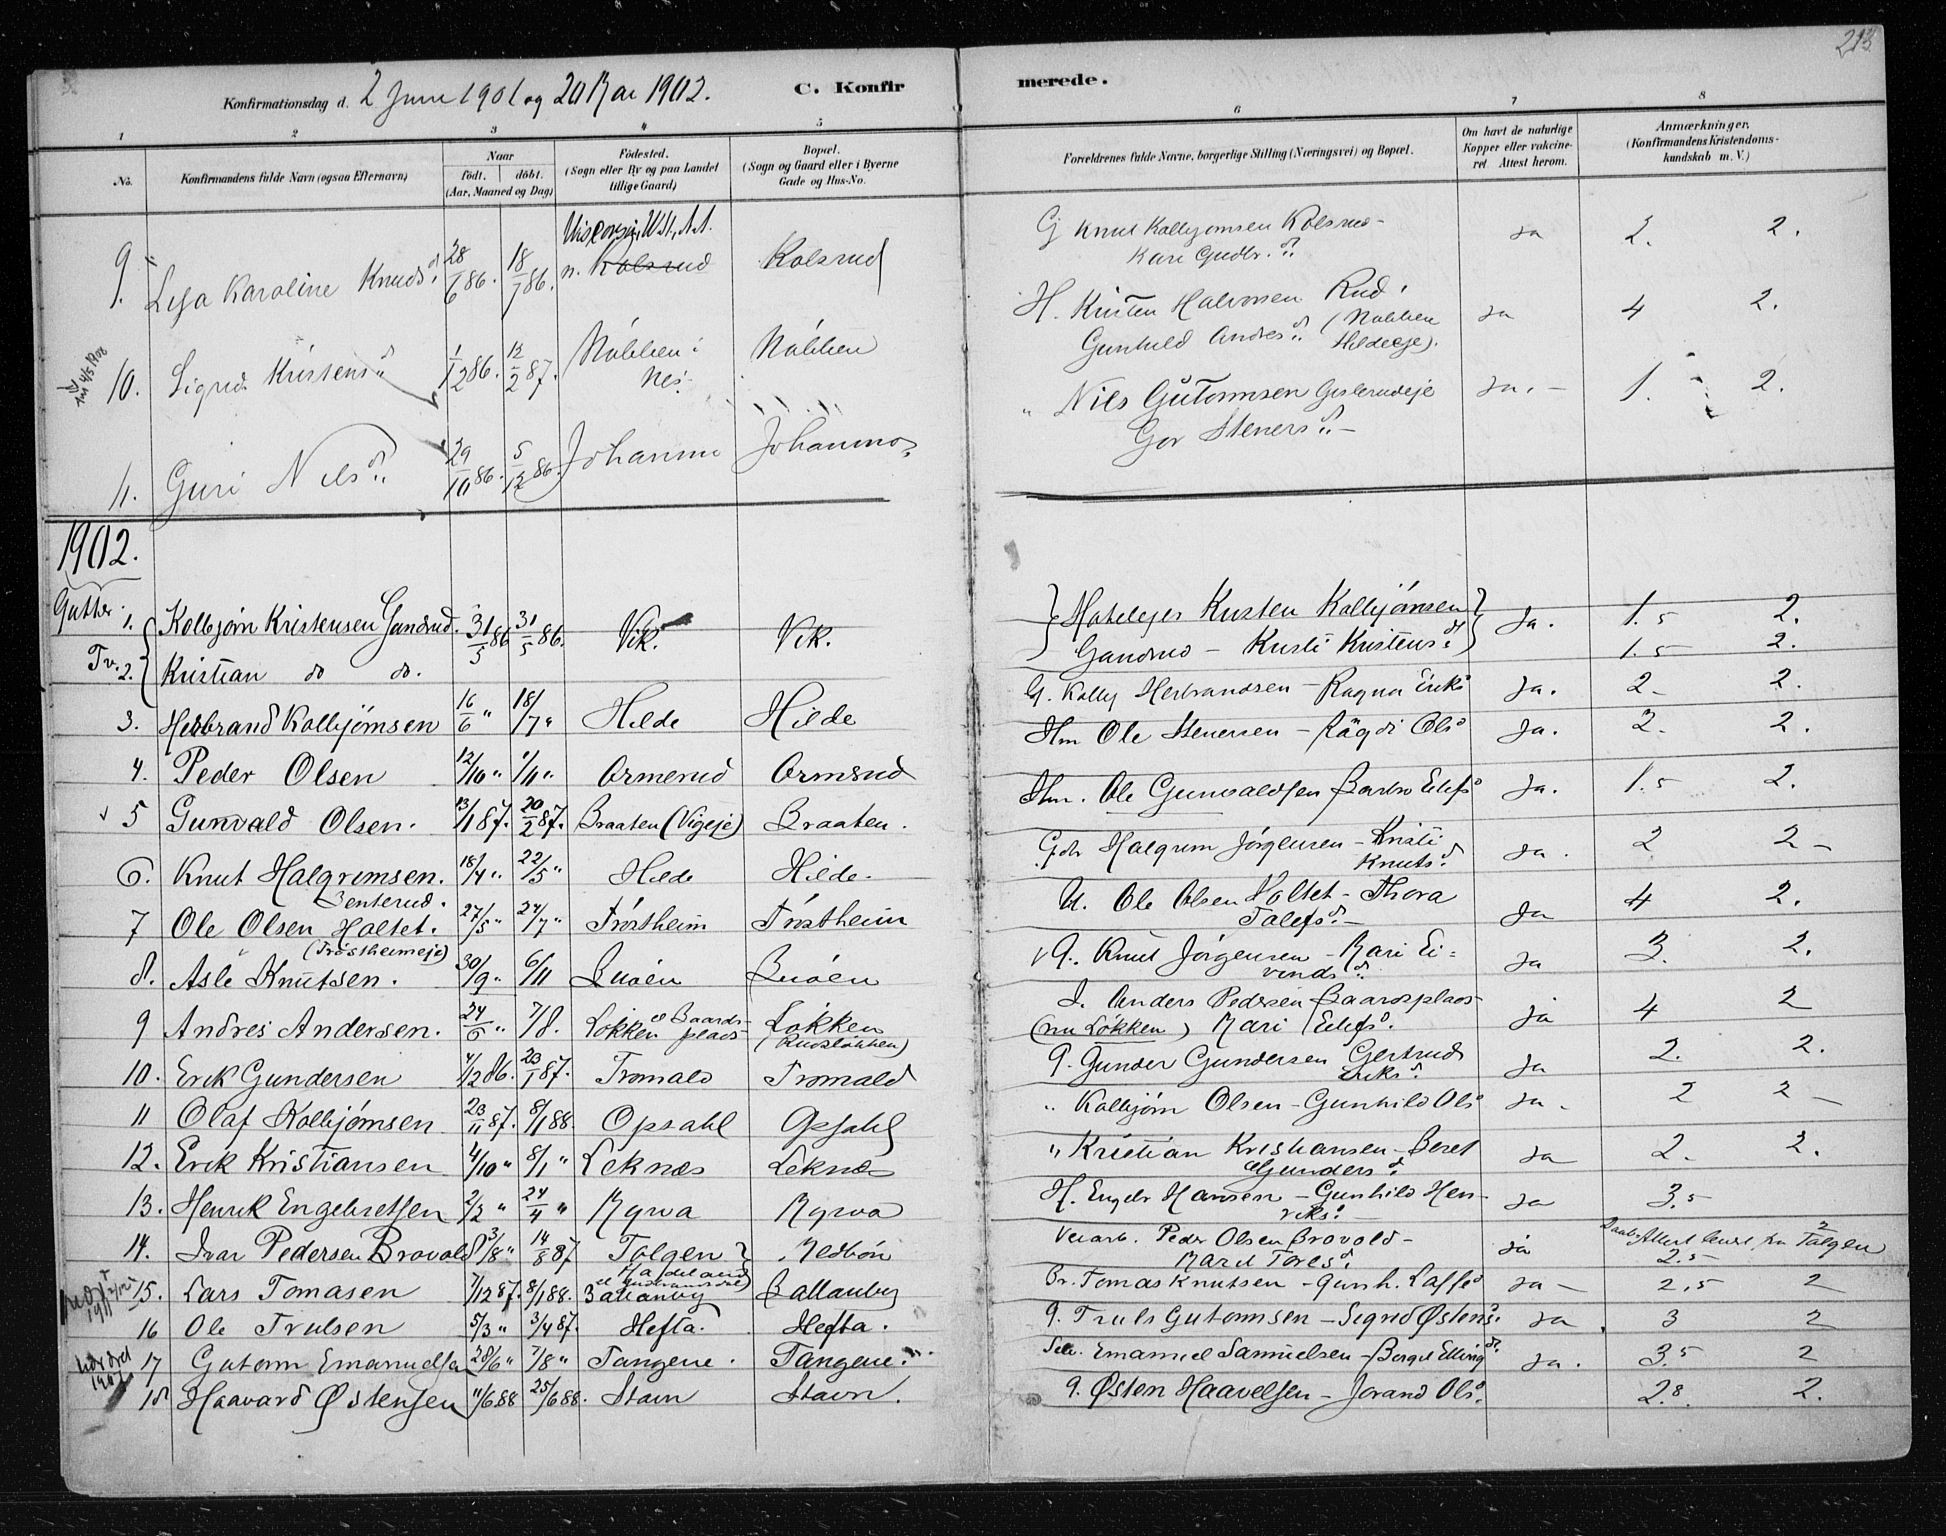 213
Konfirmationsdag d. 2 Juni 1901 og 20 Mai 1902. C. Konfirmerede.
1 2 3 4 5 6 7 8
No. Konfirmandens fulde Navn (ogsaa Efternavn) Naar født. døbt. (Aar, Maaned og Dag) Fødested. (Sogn eller By og paa Landet tillige Gaard) Bopæl. (Sogn og Gaard eller i Byerne Gade og Hus-No. Forældrenes fulde Navne, borgerlige Stilling (Næringsvei) og Bopæl. Om havt de naturlige Kopper eller vakcineret Attest herom. Anmærkninger. (Konfirmandens Kristendomskundskab m. V.)
9. Karoline Knudsd. 28/6 86. 18/7 86. n. Kolsrud Kolsrud G Knut Kolbjørnsen Kolsrud Kari Gudbr.d. Ja 2. 2.
10. Sigrid Kristensd. 1/12 86. 12/2 87. Nübben i Nes Nübben H. Kristen Halvorsen Rud. Gunhild Andresd. (Nübben Hildeeje). Ja 4 2.
11. Guri Nilsd. 29/10 86. 5/12 86. Nils Gutormsen Gor Stenersd. Ja. 1. 2.
1902.
Gutter
1. Kolbjørn Kristensen Gandrud. 31/5 86 31/5 86. Vik. Vik. Kristen Kolbjørnsen Ja. 1.5 2.
Tv. 2. Kristian do do. Gandrud - Kristi Kristensd. 1.5 2.
3. Herbrand Kolbjørnsen 16/6 " 18/7 " Hilde Hilde G. Kolbj Herbrandsen - Ragna Eriksd Ja. 2. 2.
4. Peder Olsen 12/10 " 1/11 " Ormerud Ormerud Hm Ole Stenersen - Rägdi Olsd Ja. 2. 2.
5 Gunvald Olsen. 13/1 87. 20/2 87. Braaten (Vigeje) Braaten. Hm. Ole Gunvaldsen Barbro Eilefsd Ja. 1.5 2.
6. Knut Halgrimsen. 18/4 " 22/5 " Hilde Hilde. Halgrim Jørgensen - Kristi Knutsd. Ja. 2 2
7 Ole Olsen Holtet. Benterud. 27/5 " 24/7 " Trostheim Trostheim Ole Olsen Holtet - Thora Tolefsd. Ja 4 2.
(Trostheimeje)
8. Asle Knutsen. 30/9 " 6/11 Buøen Buøen G. Knut Jørgensen - Mari Eivindsd. Ja 3. 2.
9 Andres Andersen. 24/6 " 7/8. Løkken Baardsplads Løkken (Rudsløkken) Anders Pedersen Baardsplads (nu Løkken) Mari Eilefsd. ja 4 2
10. Erik Gundersen 4/12 86. 23/1 87. Tromald Tromald G. Gunder Gundersen Gertrud Eriksd. Ja 2. 2.
11 Olaf Kolbjørnsen 23/11 87. 8/1 88. Opsahl Opsahl " Kolbjørn Olsen - Gunhild Olsd Ja. 2 2
12. Erik Kristiansen 4/10 " 8/1 " Leknes Leknes " Kristian Kristiansen - Beret Gundersd. Ja 2. 2.
13. Henrik Engebretsen 2/2 " 24/4 " Myrva Myrva H. Engebr Hansen - Gunhild Henriksd. Ja 3.5
14. Ivar Pedersen Brovold 31/8 " 14/8 87 Tolgen Medbøn Peder Olsen Brovold - Marit Toresd. Ja 2.5
15. Lars Tomasen 7/12 87. 8/1 88. Ballanby Ballanby Br. Tomas Knutsen - Gunh. Ja 2.5 2
16 Ole Trulsen 5/3 " 3/4 87. Hefta. Hefta. G. Truls Gutormsen - Sigrid Østensd. Ja 3 2
17 Gutorm Emanuelsen 28/6 " 7/8 " Tangene. Tangene. Emanuel Samuelsen - Berget Ellingd. Ja. 3.5 2
18 Haavard Østensen 11/6 88 25/6 88. Stavn Stavn. G. Østen Haavelsen - Jorand Olsd. 2.8. 2.